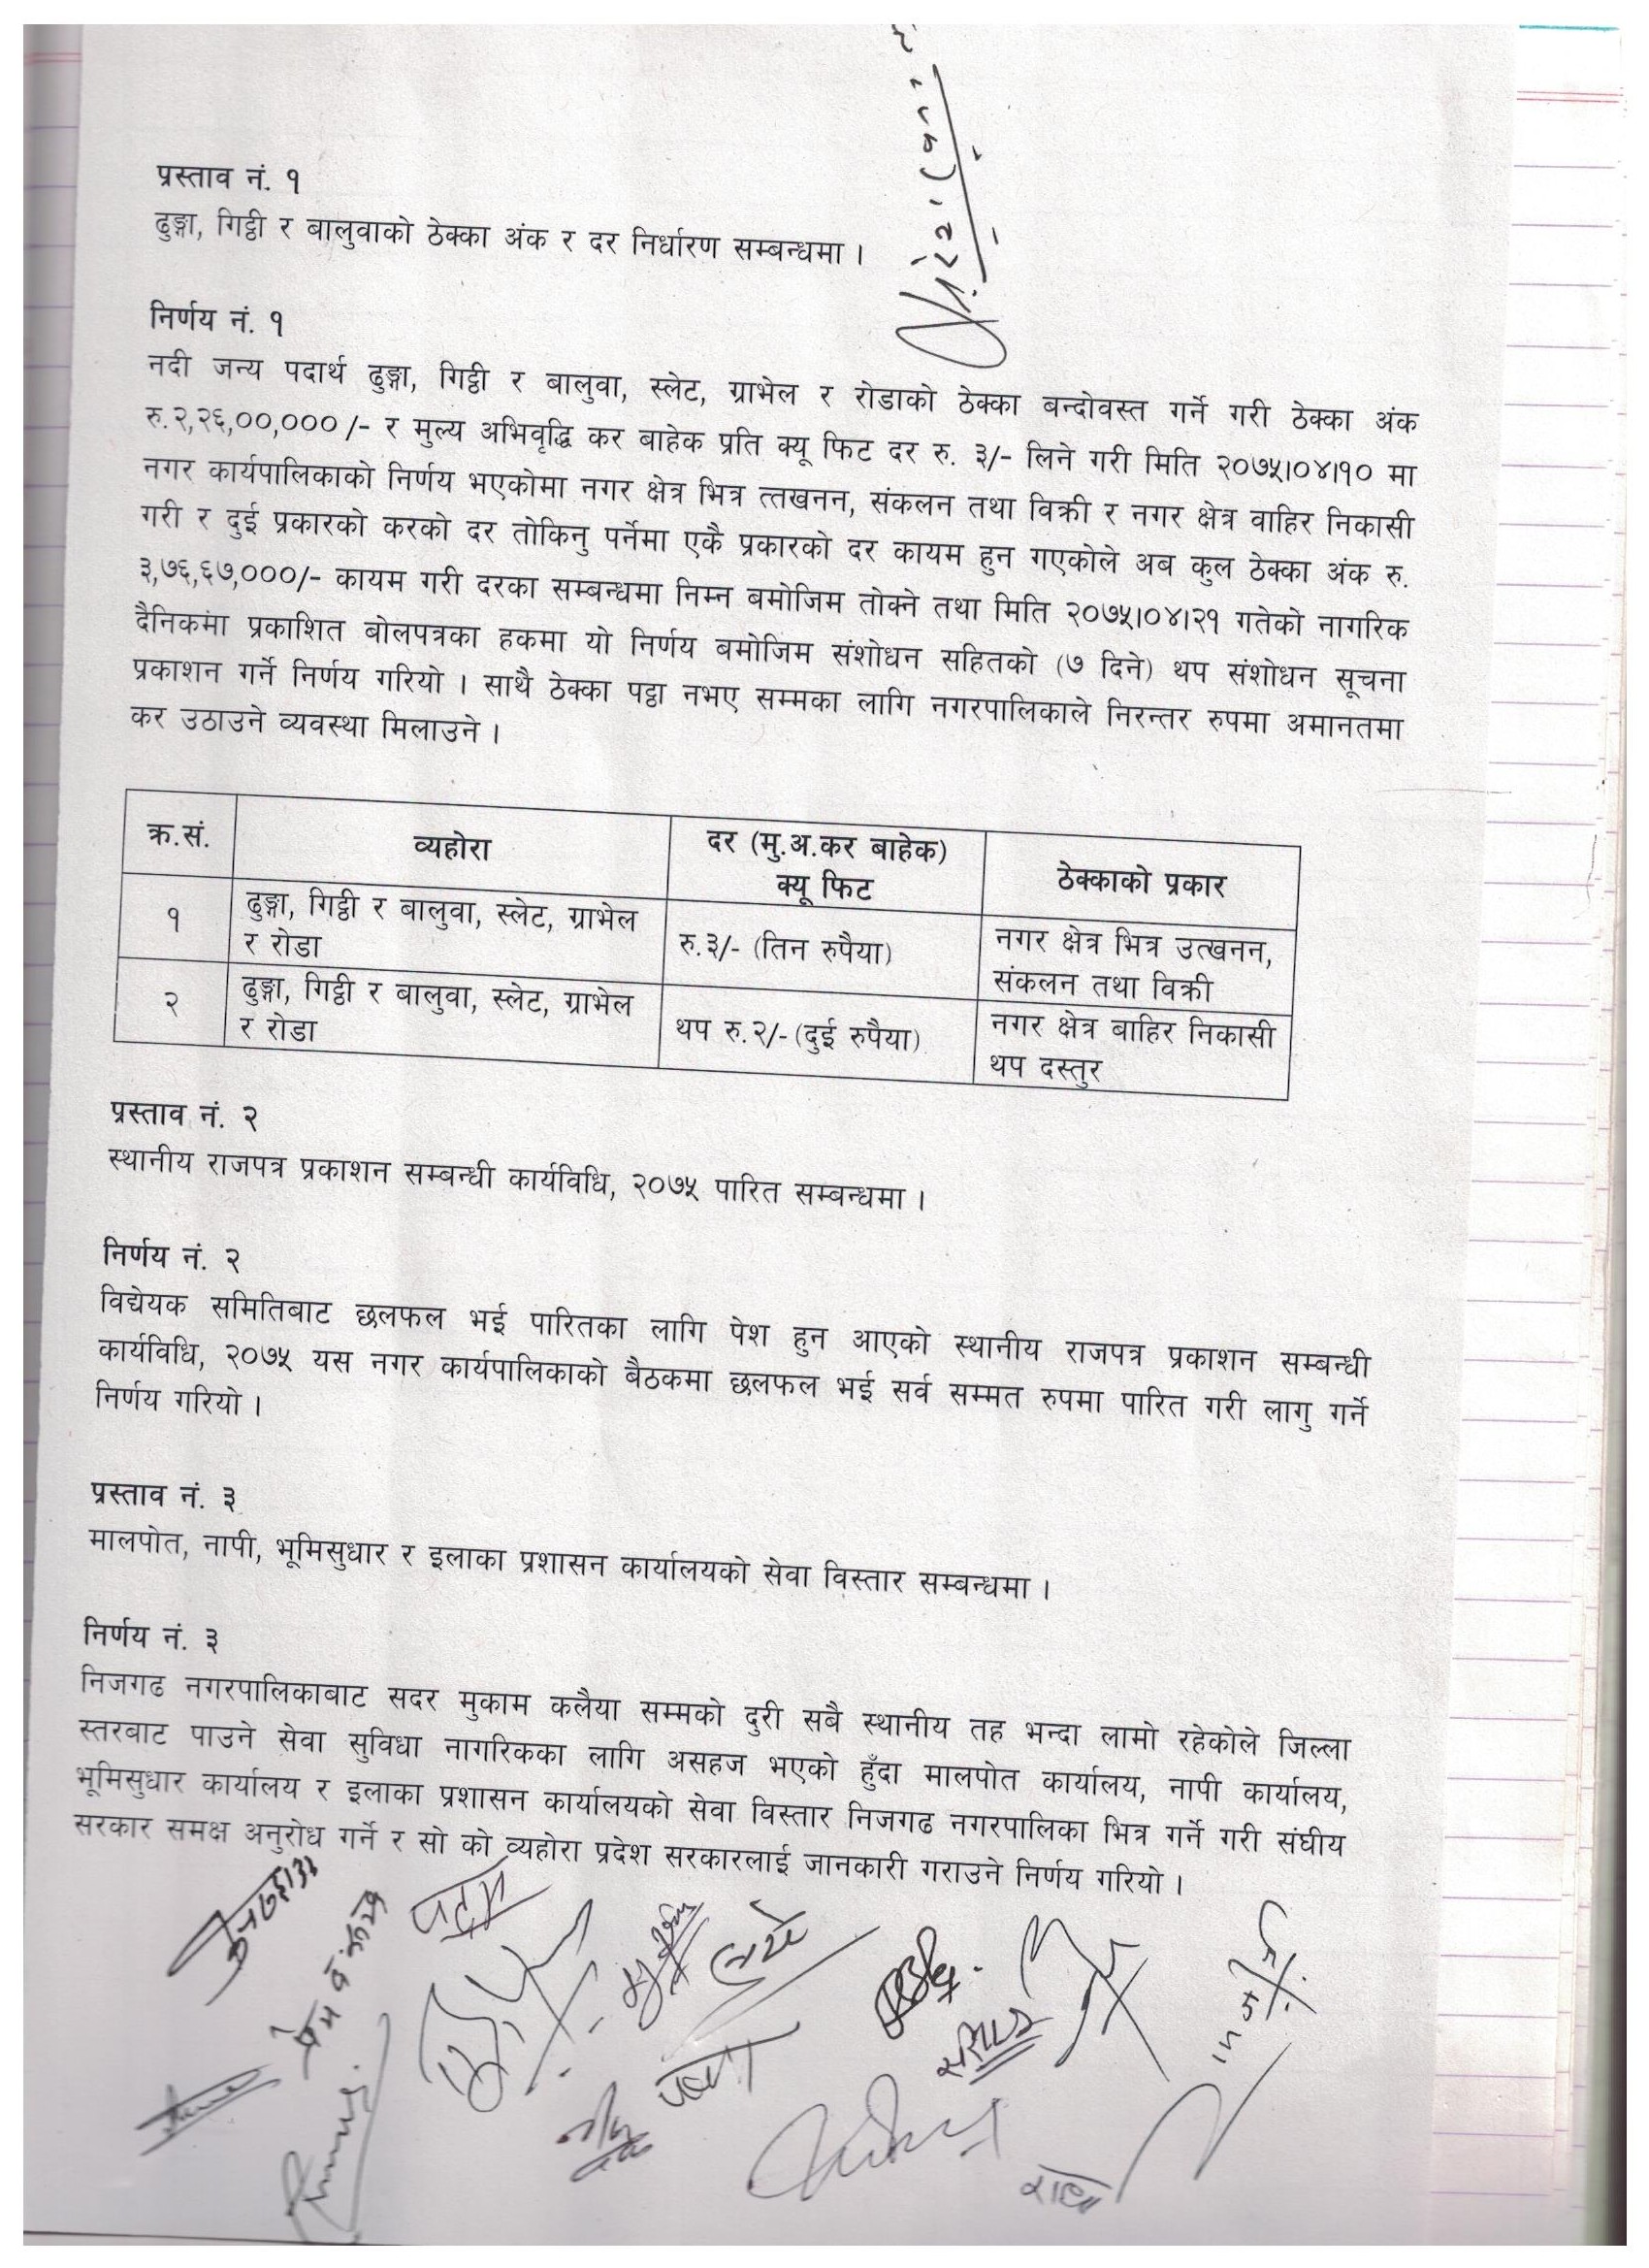 प्रस्ताव नं. १
ढुङ्गा, गिट्टी र बालुवाको ठेक्का अंक र दर निर्धारण सम्बन्धमा ।
निर्णय नं. १
नदी जन्य पदार्थ ढुङ्गा, गिट्टी र बालुवा, स्लेट, ग्राभेल र रोडाको ठेक्का बन्दोवस्त गर्ने गरी ठेक्का अंक
रु.२,२६,००,०००/- र मुल्य अभिवृद्धि कर बाहेक प्रति क्यू फिट दर रु. ३/- लिने गरी मिति २०७५।०४।१० मा
नगर कार्यपालिकाको निर्णय भएकोमा नगर क्षेत्र भित्र त्तखनन, संकलन तथा विक्री र नगर क्षेत्र वाहिर निकासी
गरी र दुई प्रकारको करको दर तोकिनु पर्नेमा एकै प्रकारको दर कायम हुन गएकोले अब कुल ठेक्का अंक रु.
३,७६,६७,०००/- कायम गरी दरका सम्बन्धमा निम्न बमोजिम तोक्ने तथा मिति २०७५।०४।२१ गतेको नागरिक
दैनिकमा प्रकाशित बोलपत्रका हकमा यो निर्णय बमोजिम संशोधन सहितको (७ दिने) थप संशोधन सूचना
प्रकाशन गर्ने निर्णय गरियो । साथै ठेक्का पट्टा नभए सम्मका लागि नगरपालिकाले निरन्तर रुपमा अमानतमा
कर उठाउने व्यवस्था मिलाउने ।
क्र.सं. व्यहोरा दर (मु.अ.कर बाहेक) क्यू फिट ठेक्काको प्रकार
१ ढुङ्गा, गिट्टी र बालुवा, स्लेट, ग्राभेल र रोडा रु.३/- (तिन रुपैया) नगर क्षेत्र भित्र उत्खनन, संकलन तथा विक्री
२ ढुङ्गा, गिट्टी र बालुवा, स्लेट, ग्राभेल र रोडा थप रु.२/- (दुई रुपैया) नगर क्षेत्र बाहिर निकासी थप दस्तुर
प्रस्ताव नं. २
स्थानीय राजपत्र प्रकाशन सम्बन्धी कार्यविधि, २०७५ पारित सम्बन्धमा ।
निर्णय नं. २
विद्येयक समितिबाट छलफल भई पारितका लागि पेश हुन आएको स्थानीय राजपत्र प्रकाशन सम्बन्धी
कार्यविधि, २०७५ यस नगर कार्यपालिकाको बैठकमा छलफल भई सर्व सम्मत रुपमा पारित गरी लागु गर्ने
निर्णय गरियो ।
प्रस्ताव नं. ३
मालपोत, नापी, भूमिसुधार र इलाका प्रशासन कार्यालयको सेवा विस्तार सम्बन्धमा ।
निर्णय नं. ३
निजगढ नगरपालिकाबाट सदर मुकाम कलैया सम्मको दुरी सबै स्थानीय तह भन्दा लामो रहेकोले जिल्ला
स्तरबाट पाउने सेवा सुविधा नागरिकका लागि असहज भएको हुँदा मालपोत कार्यालय, नापी कार्यालय,
भूमिसुधार कार्यालय र इलाका प्रशासन कार्यालयको सेवा विस्तार निजगढ नगरपालिका भित्र गर्ने गरी संघीय
सरकार समक्ष अनुरोध गर्ने र सो को व्यहोरा प्रदेश सरकारलाई जानकारी गराउने निर्णय गरियो ।